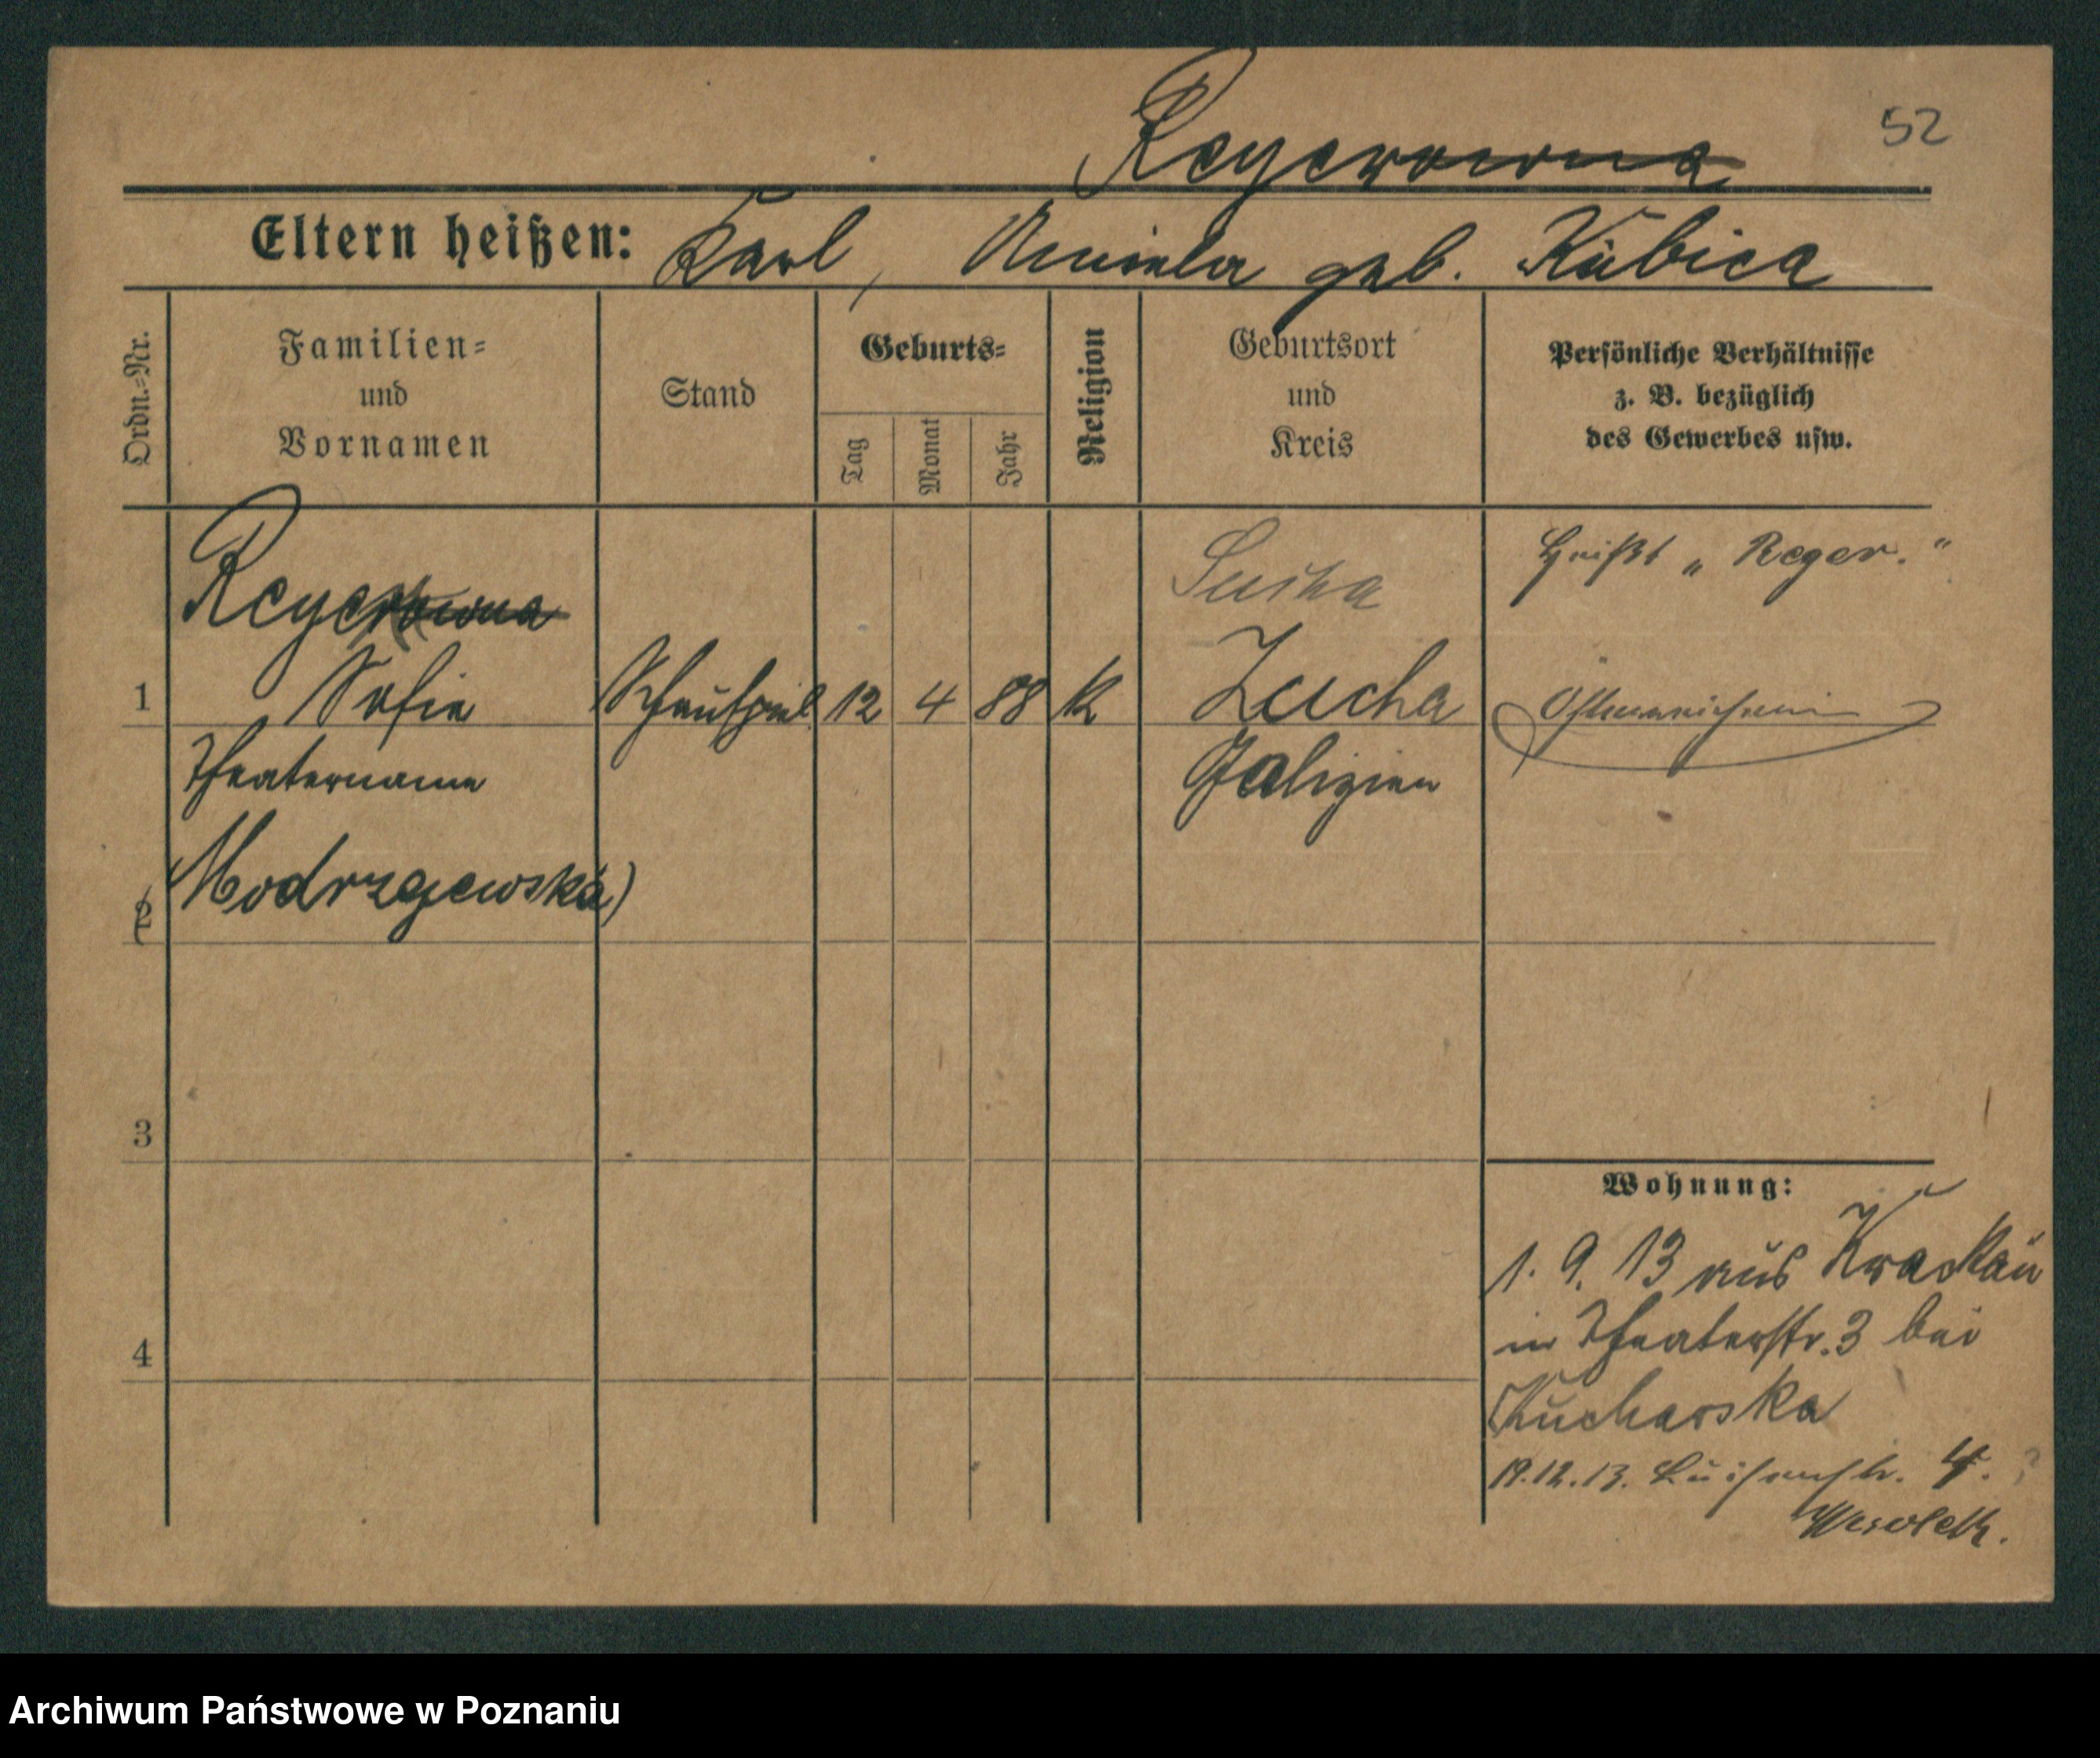 52
Regerowna
Eltern heißen: Karl, geb. Kubica
Ordn.=Nr.
Familien=
und
Vornamen
Stand
Geburts=
Tag
Monat
Jahr
Religion
Geburtsort
und
Kreis
Persönliche Verhältnisse
z. B. bezüglich
des Gewerbes usw.
Regerowna
Sucha
Heißt „Reger."
1 Sofie Schauspiel 12 4 88 K Zucha
Theatername
Galizien
Modrzejewska)
2
3
4
Wohnung:
1. 9. 13 aus Krackau
in Theaterstr. 3 bei
Kucharska
19.12.13. Luisenstr. 4.
Archiwum Państwowe w Poznaniu